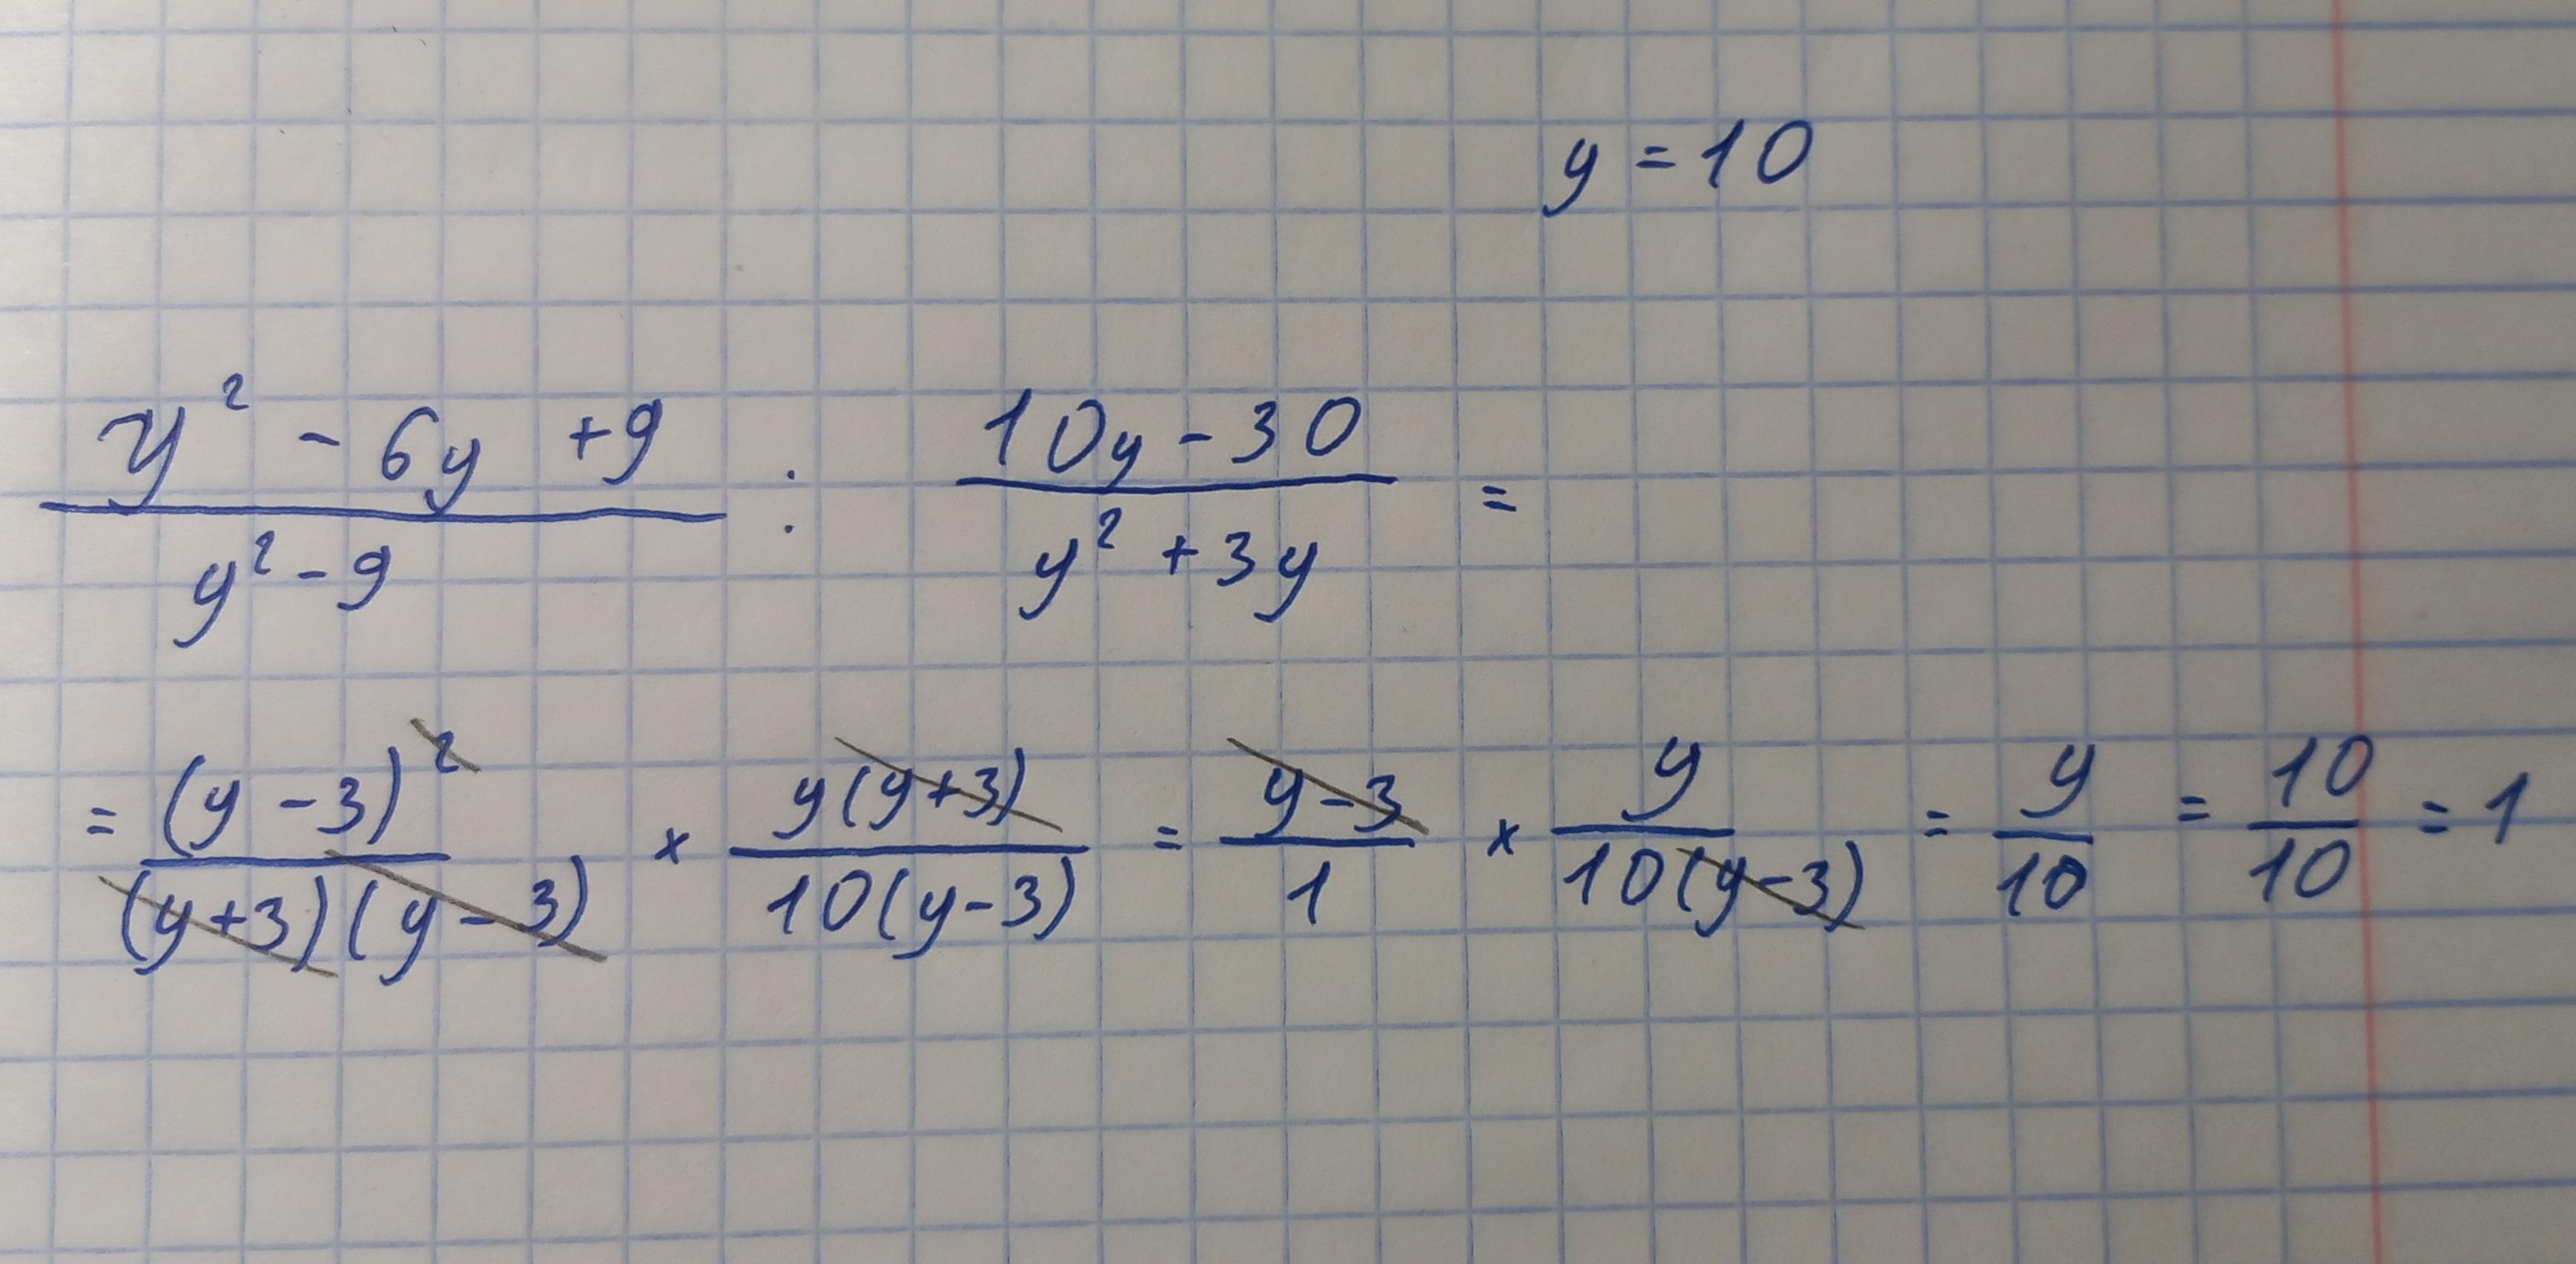 y = 10
(y² - 6y + 9)/(y² - 9) : (10y - 30)/(y² + 3y) =
= (y - 3)²/((y + 3)(y - 3)) × y(y + 3)/(10(y - 3)) = (y - 3)/1 × y/(10(y - 3)) = y/10 = 10/10 = 1